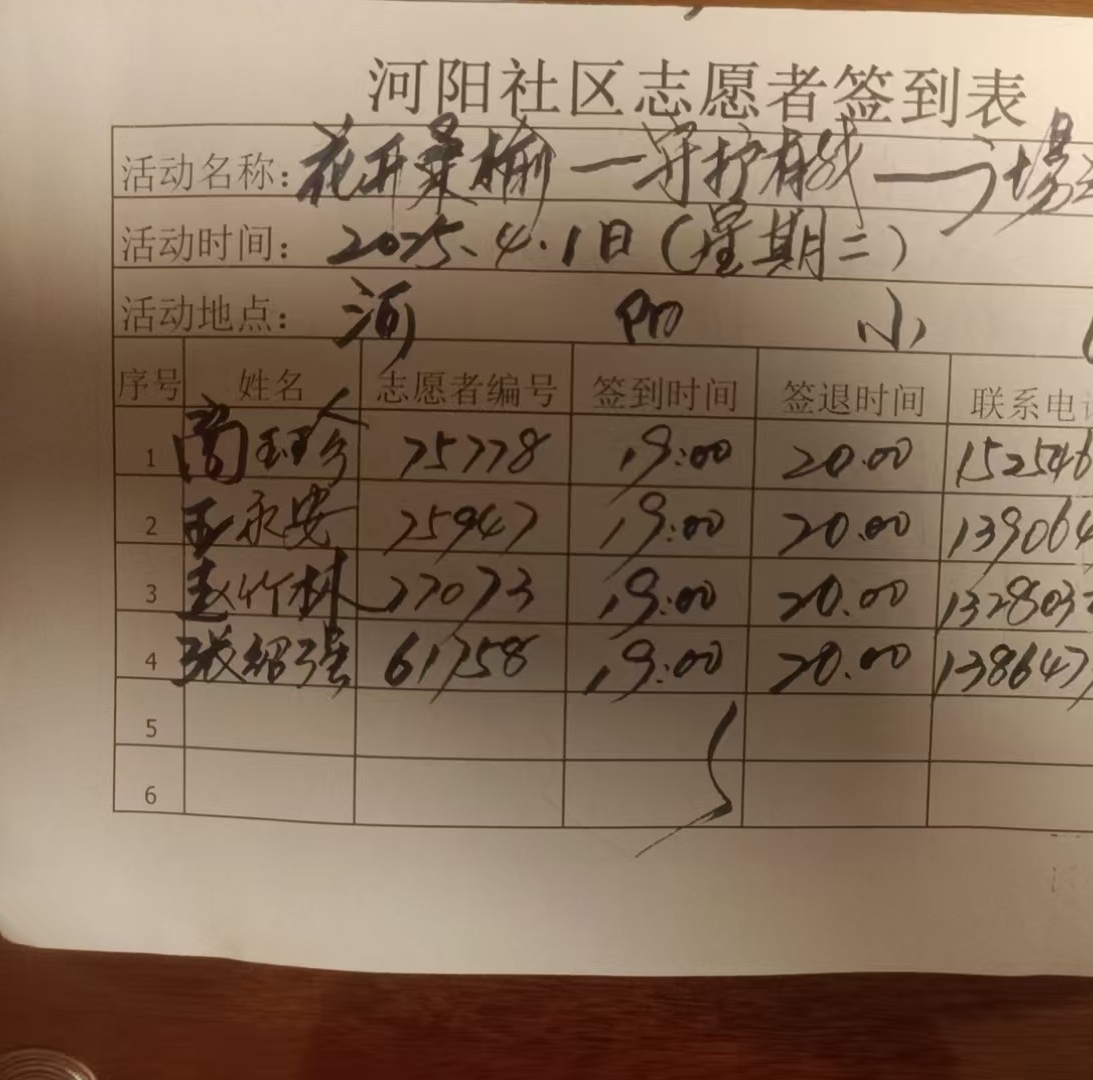 河阳社区志愿者签到表
活动名称：花开桑榆一守护有我——广场
活动时间：2025.4.1日（星期二）
活动地点：河 阳 小
序号 姓名 志愿者编号 签到时间 签退时间 联系电话
1 商珍 75778 19:00 20.00 152546
2 王永安 75947 19:00 20.00 139064
3 赵竹林 77073 19:00 20.00 132803
4 张绍强 61758 19:00 20.00 138647
5
6